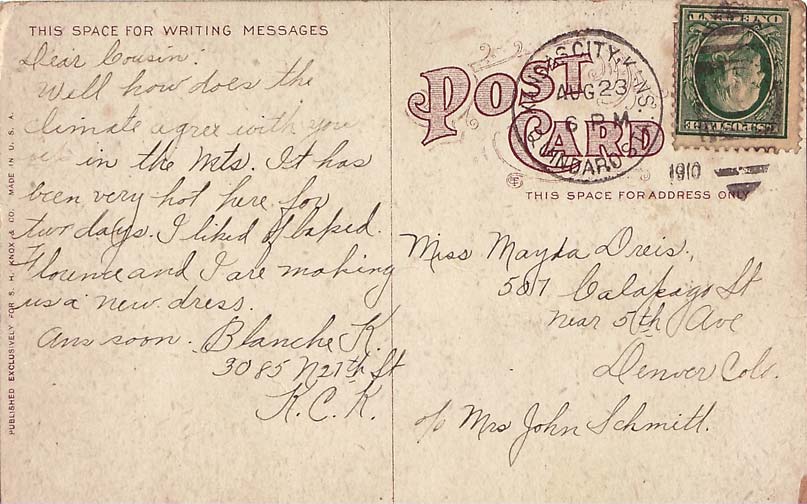 THIS SPACE FOR WRITING MESSAGES
Dear Cousin:
Well how does the
climate agree with you
in the Mts. It has
been very hot here for
two days. I liked
Florence and I are making
us a new dress.
Ans soon. Blanche K.
3085 N 27th St
K.C.K.
PUBLISHED EXCLUSIVELY FOR S. H. KNOX & CO. MADE IN U. S. A.
POST CARD
KANSAS CITY, KANS.
AUG 23
6 PM
1910
THIS SPACE FOR ADDRESS ONLY
Miss Mayda Dreis,
507 Calapago St
near 5th Ave
Denver Colo.
c/o Mrs John Schmitt.